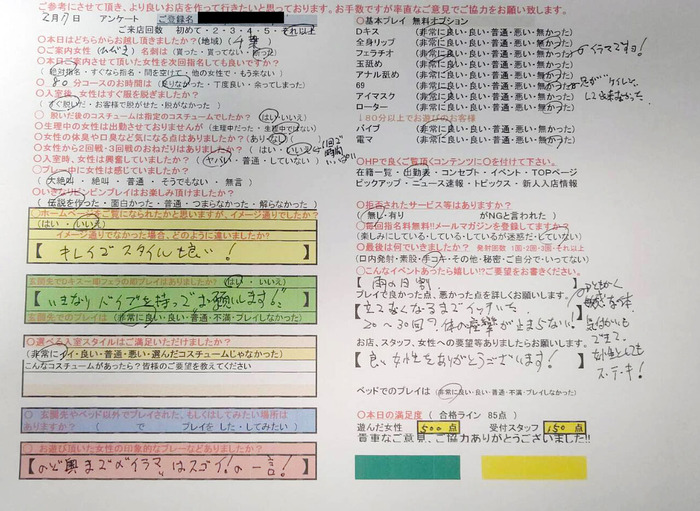 ご参考にさせて頂き、より良いお店を作って行きたいと思っております。お手数ですが率直なご意見でご協力をお願い致します。
2月7日 アンケート ご登録名
ご来店回数 初めて・2・3・4・5・それ以上
〇本日はどちらからお越し頂きましたか？(地域)( 千葉 )
〇ご案内女性 ( ) 名刺は (貰った・貰ってない・ )
〇本日ご案内させて頂いた女性を次回指名しても良いですか？
( 絶対指名・すぐなら指名・間を空けて・他の女性で・もう来ない )
〇 80分コースのお時間は ( 足りなかった・丁度良い・余ってしまった )
〇入室後、女性はすぐ服を脱ぎましたか？
( すぐ脱いだ・お客様で脱がせた・脱がなかった )
〇 脱いだ後のコスチュームは指定のコスチュームでしたか？ (はい・いいえ)
〇生理中の女性は出勤させておりませんが (生理中だった・生理中ではない)
〇女性の体臭や口臭など気になる点はありましたか？ (あり・なし)
〇女性から2回戦・3回戦のおねだりはありましたか？ (はい・いいえ)
〇入室時、女性は興奮していましたか？ (ヤバい・普通・していない)
〇プレー中に女性は感じていましたか？
(大絶叫・絶叫・普通・そうでもない・無言)
〇いきなりビンビンプレイはお楽しみ頂けましたか？
( 伝説を作った・面白かった・普通・つまらなかった・解らなかった )
〇ホームページをご覧になられたかと思いますが、イメージ通りでしたか？
(はい・いいえ)
イメージ通りでなかった場合、どのように違いましたか？
【 キレイでスタイルも良い！ 】
玄関先でDキス～即フェラの即プレイはありましたか？ (はい・いいえ)
【 いきなりバイブを持ってお願いします！ 】
玄関先でのプレイは (非常に良い・良い・普通・不満・プレイしなかった)
〇選べる入室スタイルはご満足いただけましたか？
(非常にイイ・良い・普通・悪い・選んだコスチュームじゃなかった)
こんなコスチュームがあったら？皆様のご要望を教えてください
〇 玄関先やベッド以外でプレイされた、もしくはしてみたい場所は
ありますか？ ( で プレイを した・してみたい )
〇 お遊び頂いた女性の印象的なプレーなどありましたか？
【 のど奥までの"イラマ"はスゴイ！の一言！ 】
〇基本プレイ 無料オプション
Dキス (非常に良い・良い・普通・悪い・無かった)
全身リップ (非常に良い・良い・普通・悪い・無かった)
フェラチオ (非常に良い・良い・普通・悪い・無かった) イラマすごっ！
玉舐め (非常に良い・良い・普通・悪い・無かった)
アナル舐め (非常に良い・良い・普通・悪い・無かった)
69 (非常に良い・良い・普通・悪い・無かった)
アイマスク (非常に良い・良い・普通・悪い・無かった)
ローター (非常に良い・良い・普通・悪い・無かった)
↓80分以上でお遊びのお客様
バイブ (非常に良い・良い・普通・悪い・無かった)
電マ (非常に良い・良い・普通・悪い・無かった)
〇HPで良くご覧頂くコンテンツに〇を付けて下さい。
在籍一覧・出勤表・コンセプト・イベント・TOPページ
ピックアップ・ニュース速報・トピックス・新人入店情報
〇拒否されたサービス等はありますか？
( 無し・有り がNGと言われた )
〇毎回指名料無料!!メールマガジンを登録してますか？
(楽しみにしている・している・しているが迷惑だ・していない)
〇最後は何でいきましたか？ 発射回数 1回・2回・3回・それ以上
(口内発射・素股・手コキ・その他・秘密・ご自分で・いってない)
〇こんなイベントあったら嬉しい!?ご要望をお書きください。
【 雨の日割 】
プレイで良かった点、悪かった点を詳しくお願いします。
【 立てなくなるまでイッていた。
20～30回？体の痙攣が止まらない！ 】
お店、スタッフ、女性への要望等ありましたらお願いします。
【 良い女性をありがとうございます！ 】
ベッドでのプレイは (非常に良い・良い・普通・不満・プレイしなかった)
〇本日の満足度 ( 合格ライン 85点 )
遊んだ女性 500 点 受付スタッフ 150 点
貴重なご意見、ご協力ありがとうございました!!